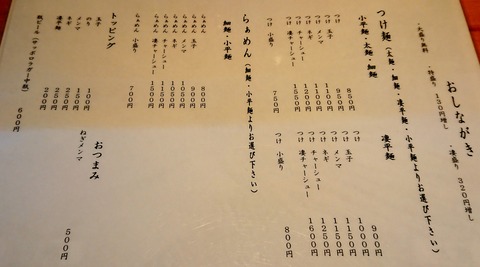 おしながき
・大盛り無料 ・特盛り 130円増し ・凄盛り 320円増し
つけ麺（太麺・細麺・凄平麺・小平麺よりお選び下さい）
小平麺・太麺・細麺
つけ 850円
つけ 玉子 950円
つけ メンマ 1100円
つけ ネギ 1100円
つけ チャーシュー 1200円
つけ 凄チャーシュー 1550円
つけ 小盛り 750円
凄平麺
つけ 900円
つけ 玉子 1000円
つけ メンマ 1150円
つけ ネギ 1150円
つけ チャーシュー 1250円
つけ 凄チャーシュー 1600円
つけ 小盛り 800円
らぁめん（細麺・小平麺よりお選び下さい）
細麺・小平麺
らぁめん 800円
らぁめん 玉子 900円
らぁめん メンマ 1050円
らぁめん ネギ 1050円
らぁめん チャーシュー 1150円
らぁめん 凄チャーシュー 1500円
らぁめん 小盛り 700円
トッピング
玉子 100円
のり 150円
メンマ 250円
ネギ 250円
凄平麺 200円
瓶ビール（サッポロラガー中瓶） 600円
おつまみ
ねぎメンマ 500円